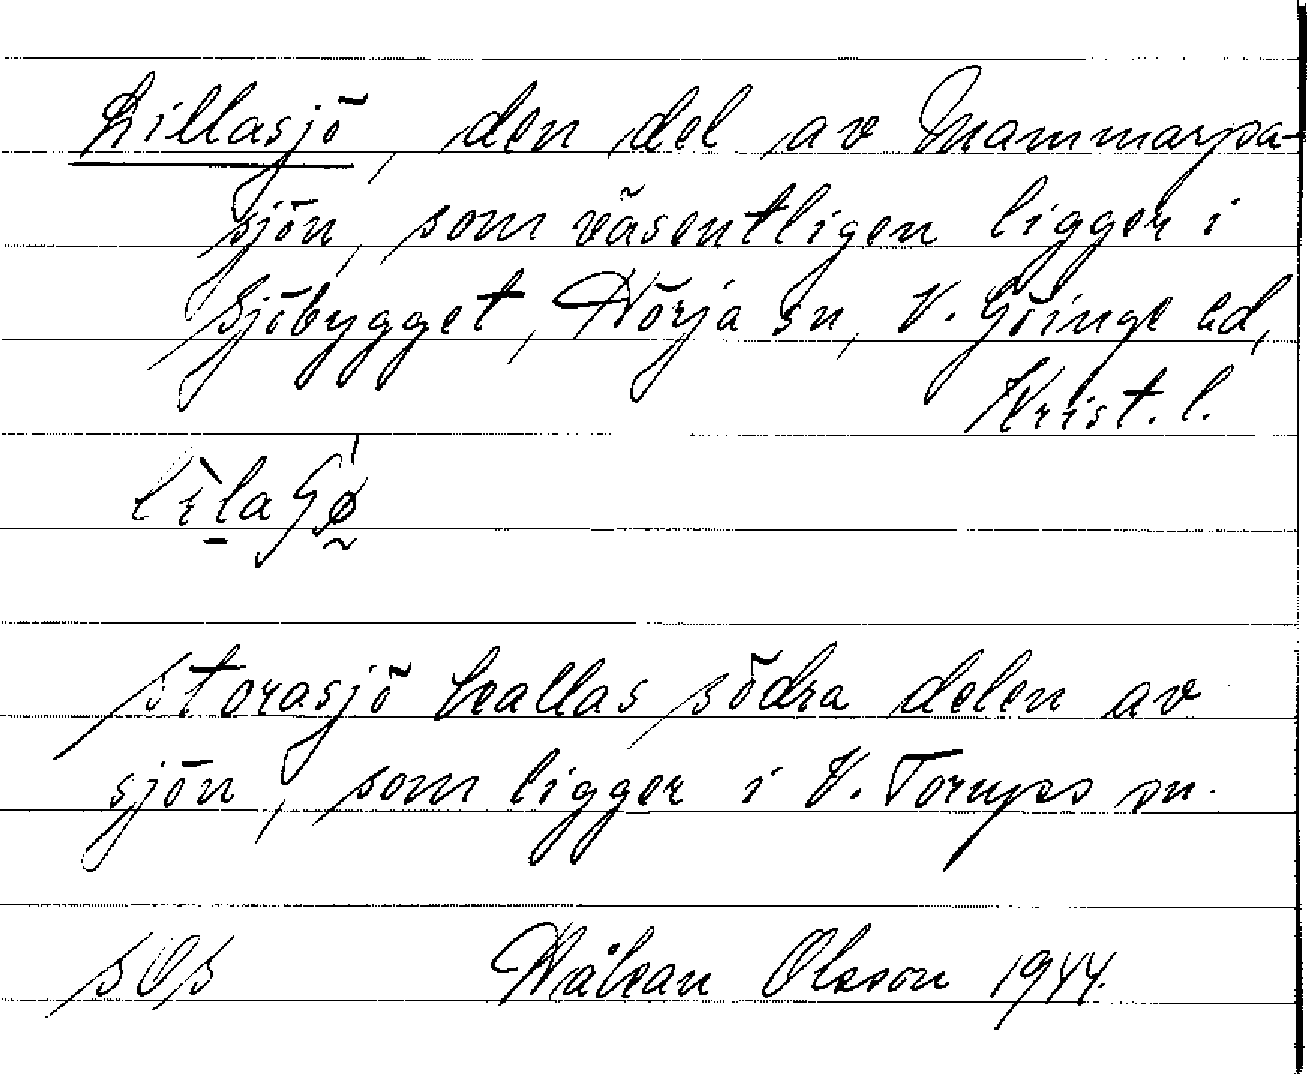 Lillasjö, den del av Mammarpa-
sjön, som väsentligen ligger i
Sjöbygget, Nörja sn, V. Göinge hd,
Krist. l.
Storasjö kallas södra delen av
sjön, som ligger i V. Torups sn.
Håkan Olsson 1944.